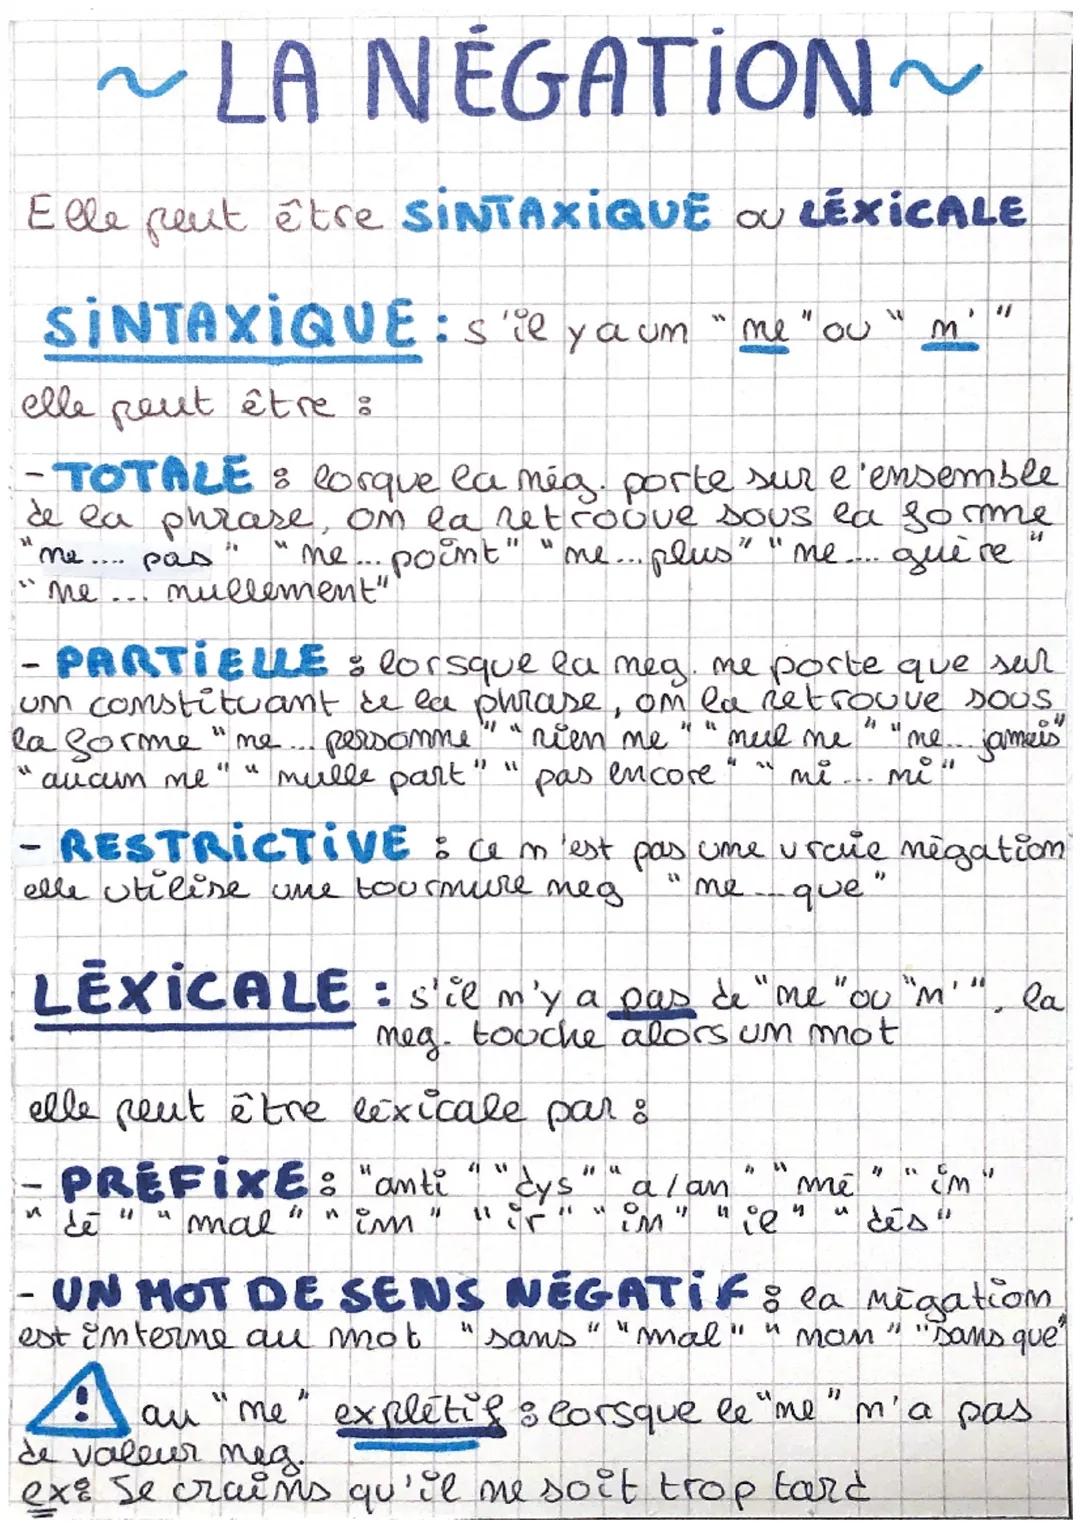 ~ LA NÉGATION ~
Elle peut être SINTAXIQUE ou LÉXICALE
SINTAXIQUE : s'il y a un "ne" ou "n'"
elle peut être :
- TOTALE : lorque la nég. porte sur l'ensemble
de la phrase, on la retrouve sous la forme
"ne.... pas" "ne... point" "ne... plus" "ne.... guère"
"ne ... nullement"
- PARTIELLE : lorsque la neg. ne porte que sur
un constituant de la phrase, on la retrouve sous
la forme "ne ... personne" "rien ne" "nul ne" "ne... jamais"
"aucun ne" "nulle part" "pas encore" "ni ... ni"
- RESTRICTIVE : ce n'est pas une vraie négation
elle utilise une tournure neg "ne ... que"
LÉXICALE : s'il n'y a pas de "ne" ou "n'", la
neg. touche alors un mot
elle peut être léxicale par :
- PRÉFIXE : "anti" "dys" "a/an" "mé" "im"
"dé" "mal" "inn" "ir" "in" "il" "dés"
- UN MOT DE SENS NÉGATIF : la négation
est interne au mot "sans" "mal" "non" "sans que"
! au "ne" explétif : lorsque le "ne" n'a pas
de valeur neg.
ex: Je crains qu'il ne soit trop tard